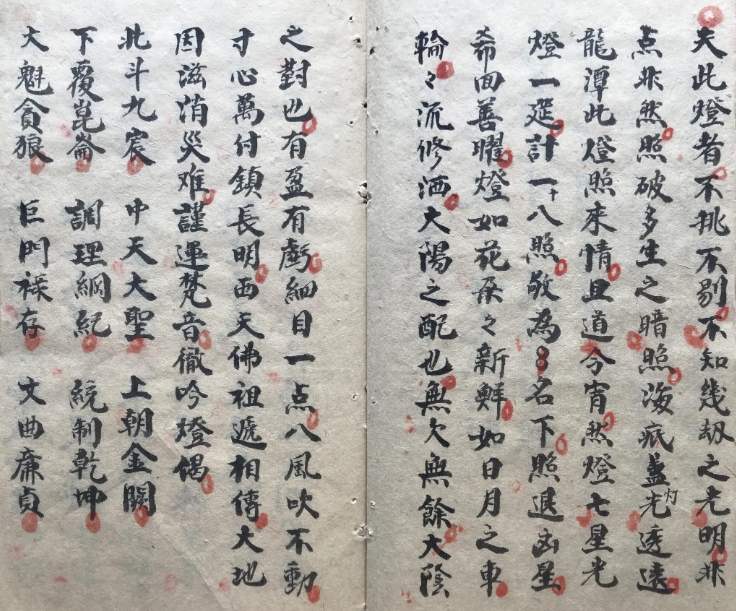 夫此燈者不挑不剔不知幾劫之光明非
点非然照破多生之暗照海底盞光灼透遠
龍潭此燈照來情且道今宵然燈七星光
燈一筵計一十八照敬為名下照退凶星
希回善曜燈如花朵々新鮮如日月之車
輪々流修洒大陽之配也無欠無餘大陰
之對也有盈有虧細目一点八風吹不動
寸心萬付鎮長明西天佛祖遞相傳大地
因滋消災难謹運梵音徹吟燈偈
北斗九宸 中天大聖 上朝金闕
下覆崑崙 調理綱紀 統制乾坤
大魁貪狼 巨門祿存 文曲廉貞